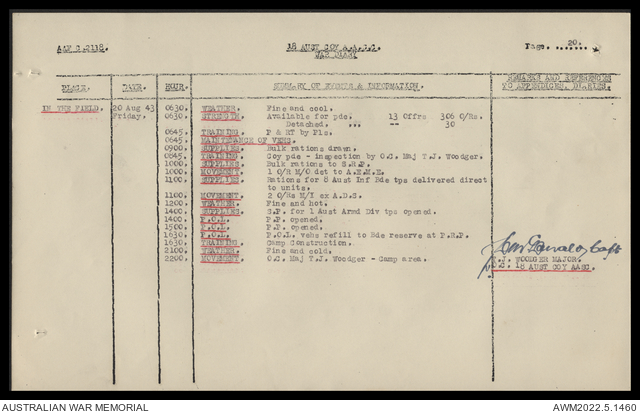 AAF C.2118.
18 AUST COY A.A.S.C.
WAR DIARY
Page. 20.
PLACE. DATE. HOUR. SUMMARY OF EVENTS & INFORMATION. REMARKS AND REFERENCES TO APPENDICES, DIARIES.
IN THE FIELD. 20 Aug 43 0630. WEATHER. Fine and cool.
Friday. 0630. STRENGTH. Available for pde. 13 Offrs 306 O/Rs.
Detached. " -- 30
0645. TRAINING. P & RT by Pls.
0645. MAINTENANCE OF VEHS.
0900. SUPPLIES. Bulk rations drawn.
0645. TRAINING. Coy pde - inspection by O.C. Maj T.J. Woodger.
1000. SUPPLIES. Bulk rations to S.R.P.
1000. MOVEMENT. 1 O/R M/O det to A.E.M.E.
1100. SUPPLIES. Rations for 8 Aust Inf Bde tps delivered direct
to units.
1100. MOVEMENT. 2 O/Rs M/I ex A.D.S.
1200. WEATHER. Fine and hot.
1400. SUPPLIES. S.P. for 1 Aust Armd Div tps opened.
1400. P.O.L. P.P. opened.
1500. P.O.L. P.P. opened.
1630. P.O.L. P.O.L. vehs refill to Bde reserve at P.R.P.
1630. TRAINING. Camp Construction.
2100. WEATHER. Fine and cold.
2200. MOVEMENT. O.C. Maj T.J. Woodger - Camp area.
Capt
T.J. WOODGER MAJOR.
O.C. 18 AUST COY AASC.
AUSTRALIAN WAR MEMORIAL
AWM2022.5.1460